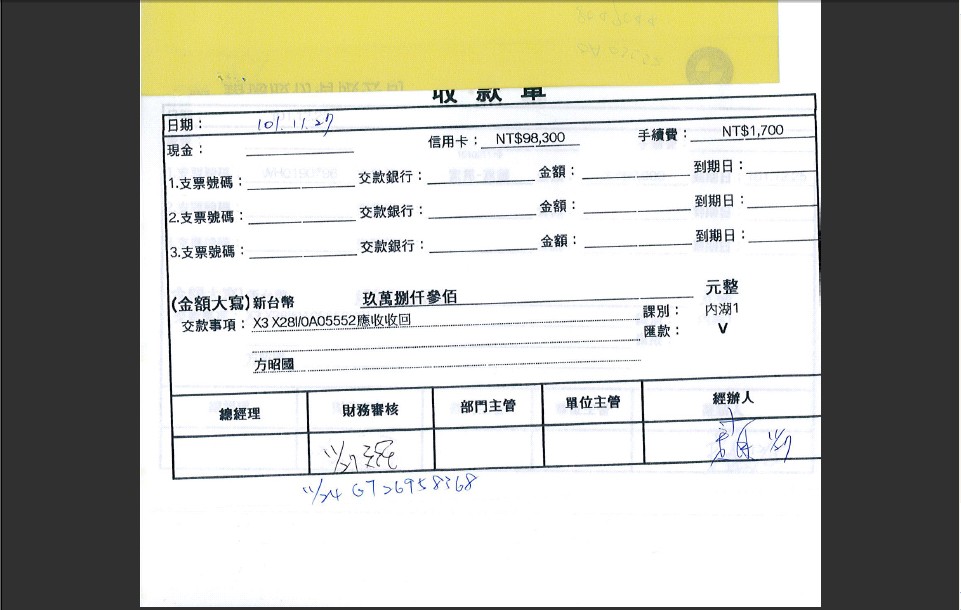 收款單
日期： 101.11.27
現金： 信用卡： NT$98,300 手續費： NT$1,700
1.支票號碼： 交款銀行： 金額： 到期日：
2.支票號碼： 交款銀行： 金額： 到期日：
3.支票號碼： 交款銀行： 金額： 到期日：
(金額大寫) 新台幣 玖萬捌仟參佰 元整
交款事項： X3 X28I/0A05552應收收回 課別： 內湖1
匯款： V
方昭國
總經理 財務審核 部門主管 單位主管 經辦人
11/27 11/27
11/24 GT26958368